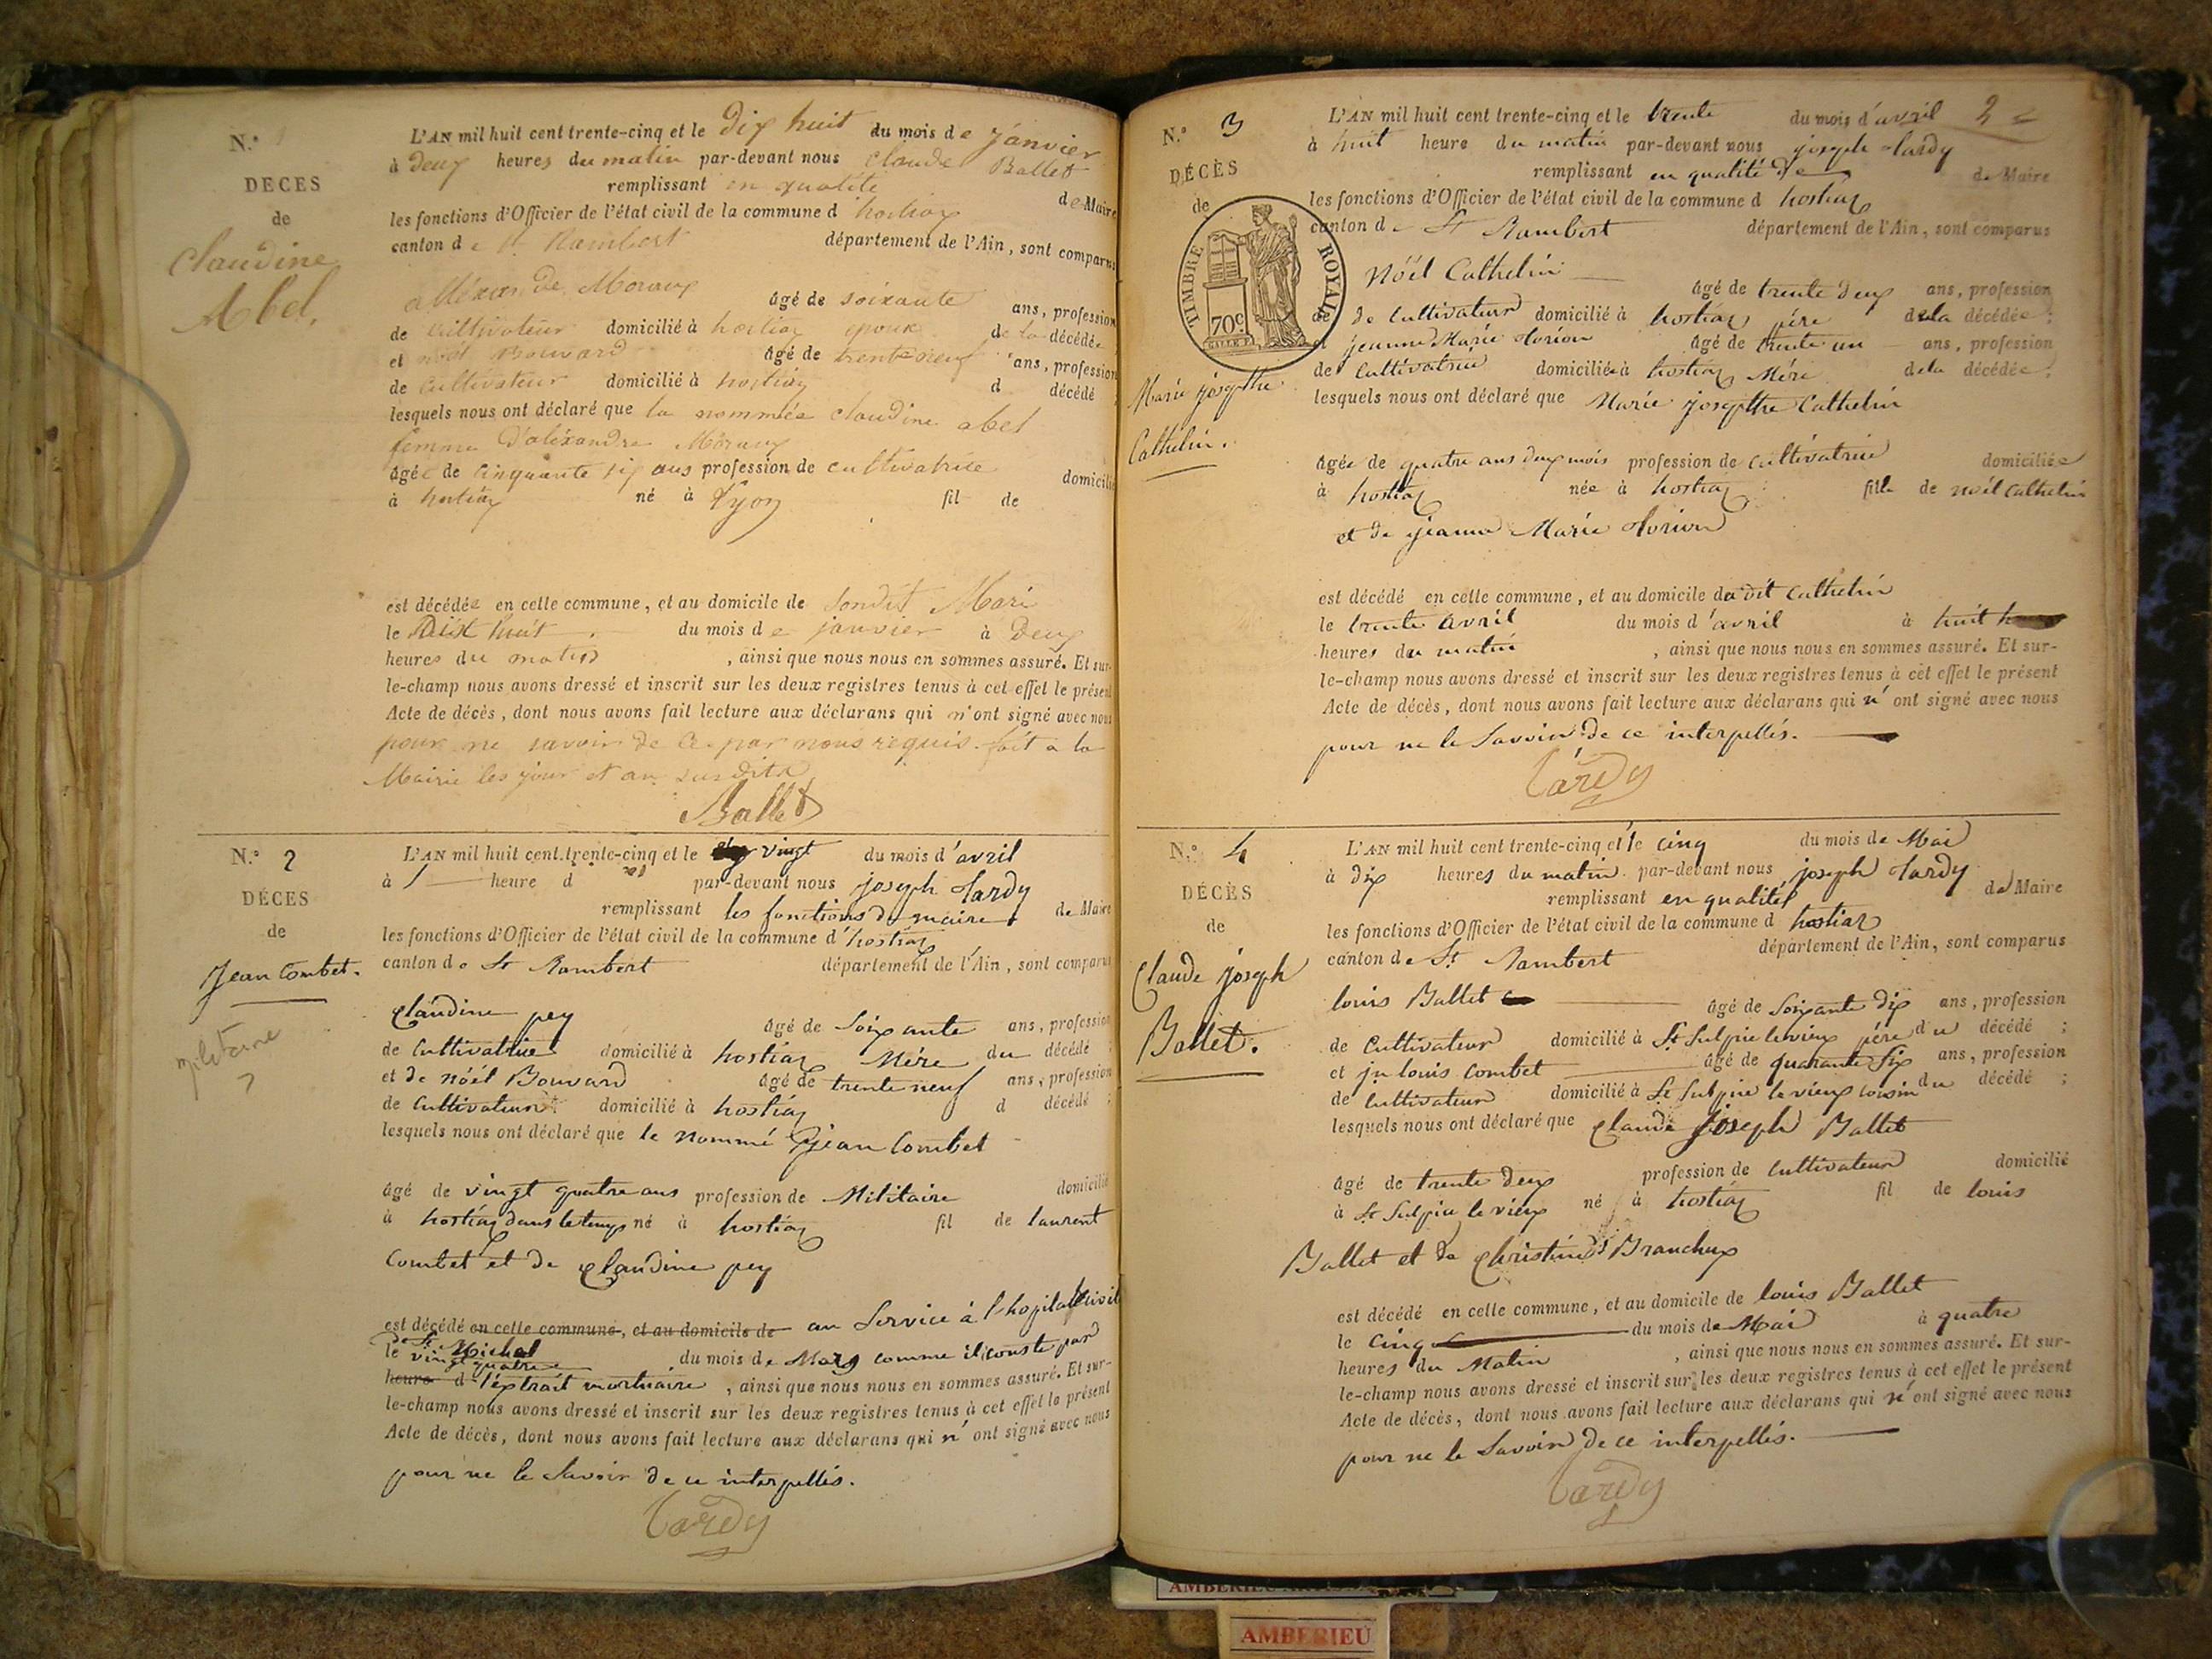 N.° 1
DECES
de
Claudine
Abel,
L'AN mil huit cent trente-cinq et le dix huit du mois de janvier
à deux heures du matin par-devant nous Claude Ballet
remplissant en qualité de Maire
les fonctions d'Officier de l'état civil de la commune d hostiaz
canton de St Rambert département de l'Ain, sont comparus
alléxandre Moraux âgé de soixante ans, profession
de cultivateur domicilié à hostiaz époux de la décédée
et noël Bouvard âgé de trente neuf ans, profession
de cultivateur domicilié à hostiaz d décédé
lesquels nous ont déclaré que la nommée claudine abel
femme d'aléxandre Moraux
âgée de cinquante six ans profession de cultivatrice domicilié
à hostiaz né à Lyon fil de
est décédée en cette commune, et au domicile de sondit Mari
le dix huit du mois de janvier à deux
heures du matin, ainsi que nous nous en sommes assuré. Et sur-
le-champ nous avons dressé et inscrit sur les deux registres tenus à cet effet le présent
Acte de décès, dont nous avons fait lecture aux déclarans qui n'ont signé avec nous
pour ne savoir de ce par nous requis. fait a la
Mairie les jour et an susdits
Ballet
N.° 2
DÉCES
de
Jean Combet.
militaire
?
L'AN mil huit cent trente-cinq et le vingt du mois d'avril
à 1 heure d par-devant nous joseph tardy
remplissant les fonctions de maire de Maire
les fonctions d'Officier de l'état civil de la commune d'hostiaz
canton de St Rambert département de l'Ain, sont comparus
Claudine pey âgé de soixante ans, profession
de Cultivatrice domicilié à hostiaz Mére du décédé
et de nóël Bouvard âgé de trente neuf ans, profession
de Cultivateur domicilié à hostiaz d décédé ;
lesquels nous ont déclaré que le nommé jean Combet
âgé de vingt quatre ans profession de Militaire domicilié
à hostiaz dans le temps né à hostiaz fil de laurent
Combet et de Claudine pey
est décédé en cette commune, et au domicile de au Service à l'hopital civil
de St Michel
le vingt quatre du mois de Mars comme il conste par
heure d l'éxtrait mortuaire, ainsi que nous nous en sommes assuré. Et sur-
le-champ nous avons dressé et inscrit sur les deux registres tenus à cet effet le présent
Acte de décès, dont nous avons fait lecture aux déclarans qui n'ont signé avec nous
pour ne le Savoir de ce interpellés.
Tardy
2
N.° 3
DÉCÈS
de
TIMBRE ROYAL
70c
Marie josepthe
Cathelin.
L'AN mil huit cent trente-cinq et le trente du mois d'avril
à huit heure du matin par-devant nous joseph tardy
remplissant en qualité de de Maire
les fonctions d'Officier de l'état civil de la commune d hostiaz
canton de St Rambert département de l'Ain, sont comparus
Nóël Cathelin âgé de trente deux ans, profession
de de Cultivateur domicilié à hostiaz pére de la décédée ;
et jeanne Marie torion âgé de trente un ans, profession
de Cultivatrice domiciliée à hostiaz Mére de la décédée ;
lesquels nous ont déclaré que Marie josepthe Cathelin
âgée de quatre ans deux mois profession de Cultivatrice domiciliée
à hostiaz née à hostiaz fille de nóël Cathelin
et de jeanne Marie torion
est décédé en cette commune, et au domicile du dit Cathelin
le trente avril du mois d'avril à huit
heures du matin, ainsi que nous nous en sommes assuré. Et sur-
le-champ nous avons dressé et inscrit sur les deux registres tenus à cet effet le présent
Acte de décès, dont nous avons fait lecture aux déclarans qui n'ont signé avec nous
pour ne le Savoir de ce interpellés.
Tardy
N.° 4
DÉCÈS
de
Claude joseph
Ballet.
L'AN mil huit cent trente-cinq et le cinq du mois de Mai
à dix heures du matin par-devant nous joseph tardy
remplissant en qualité de Maire
les fonctions d'Officier de l'état civil de la commune d hostiaz
canton de St Rambert département de l'Ain, sont comparus
louis Ballet âgé de soixante dix ans, profession
de Cultivateur domicilié à St Sulpice le vieux pére du décédé ;
et jn louis Combet âgé de quarante six ans, profession
de Cultivateur domicilié à St Sulpice le vieux cousin du décédé ;
lesquels nous ont déclaré que Claude joseph Ballet
âgé de trente deux profession de Cultivateur domicilié
à St Sulpice le vieux né à hostiaz fil de louis
Ballet et de Christine Branchux
est décédé en cette commune, et au domicile de louis Ballet
le cinq du mois de Mai à quatre
heures du Matin, ainsi que nous nous en sommes assuré. Et sur-
le-champ nous avons dressé et inscrit sur les deux registres tenus à cet effet le présent
Acte de décès, dont nous avons fait lecture aux déclarans qui n'ont signé avec nous
pour ne le Savoir de ce interpellés.
Tardy
AMBERIEU